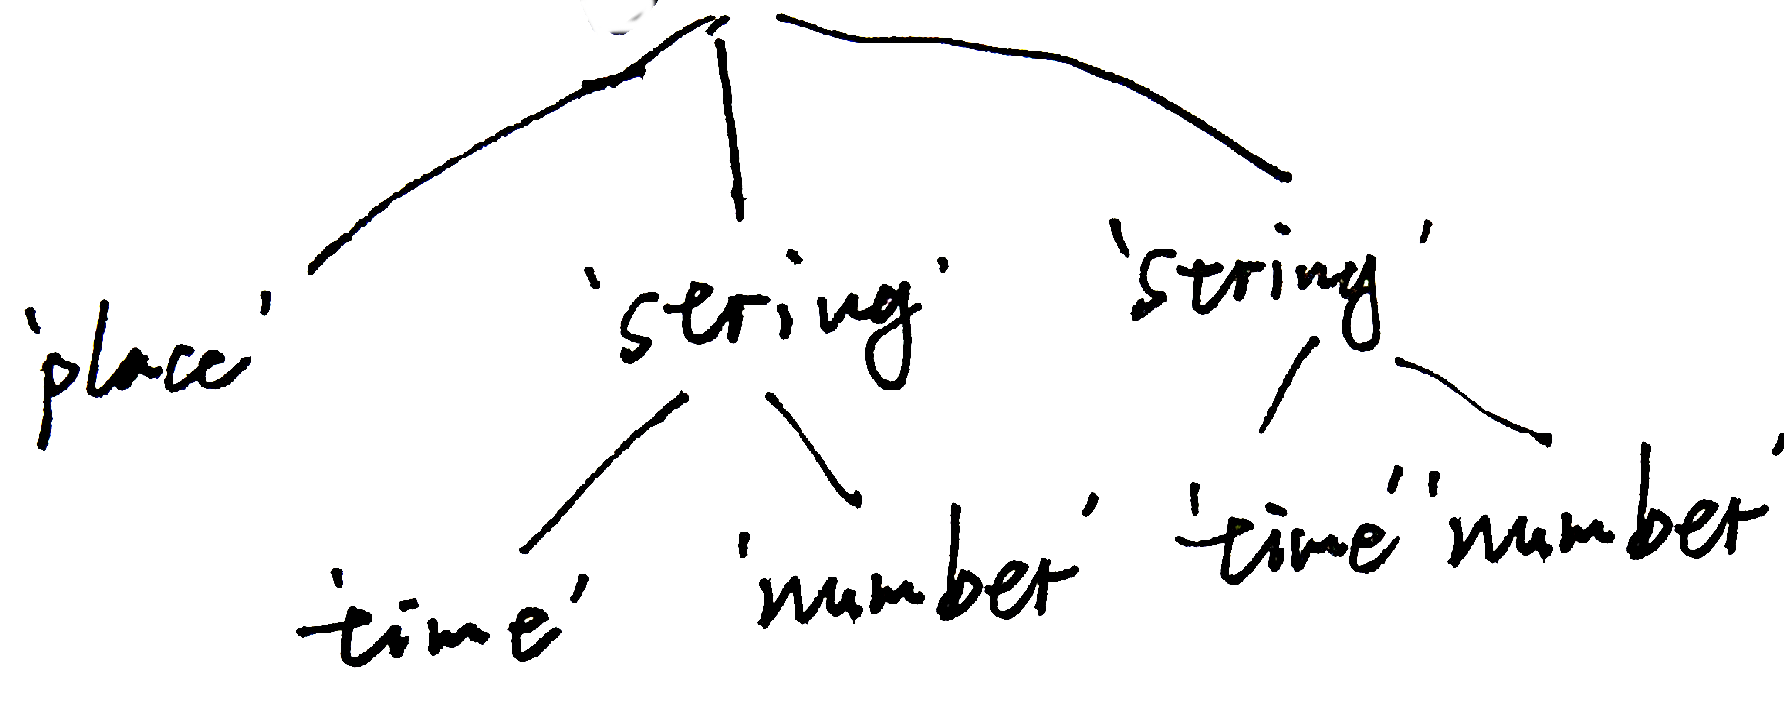 'place' 'string' 'string'
'time' 'number' 'time' 'number'